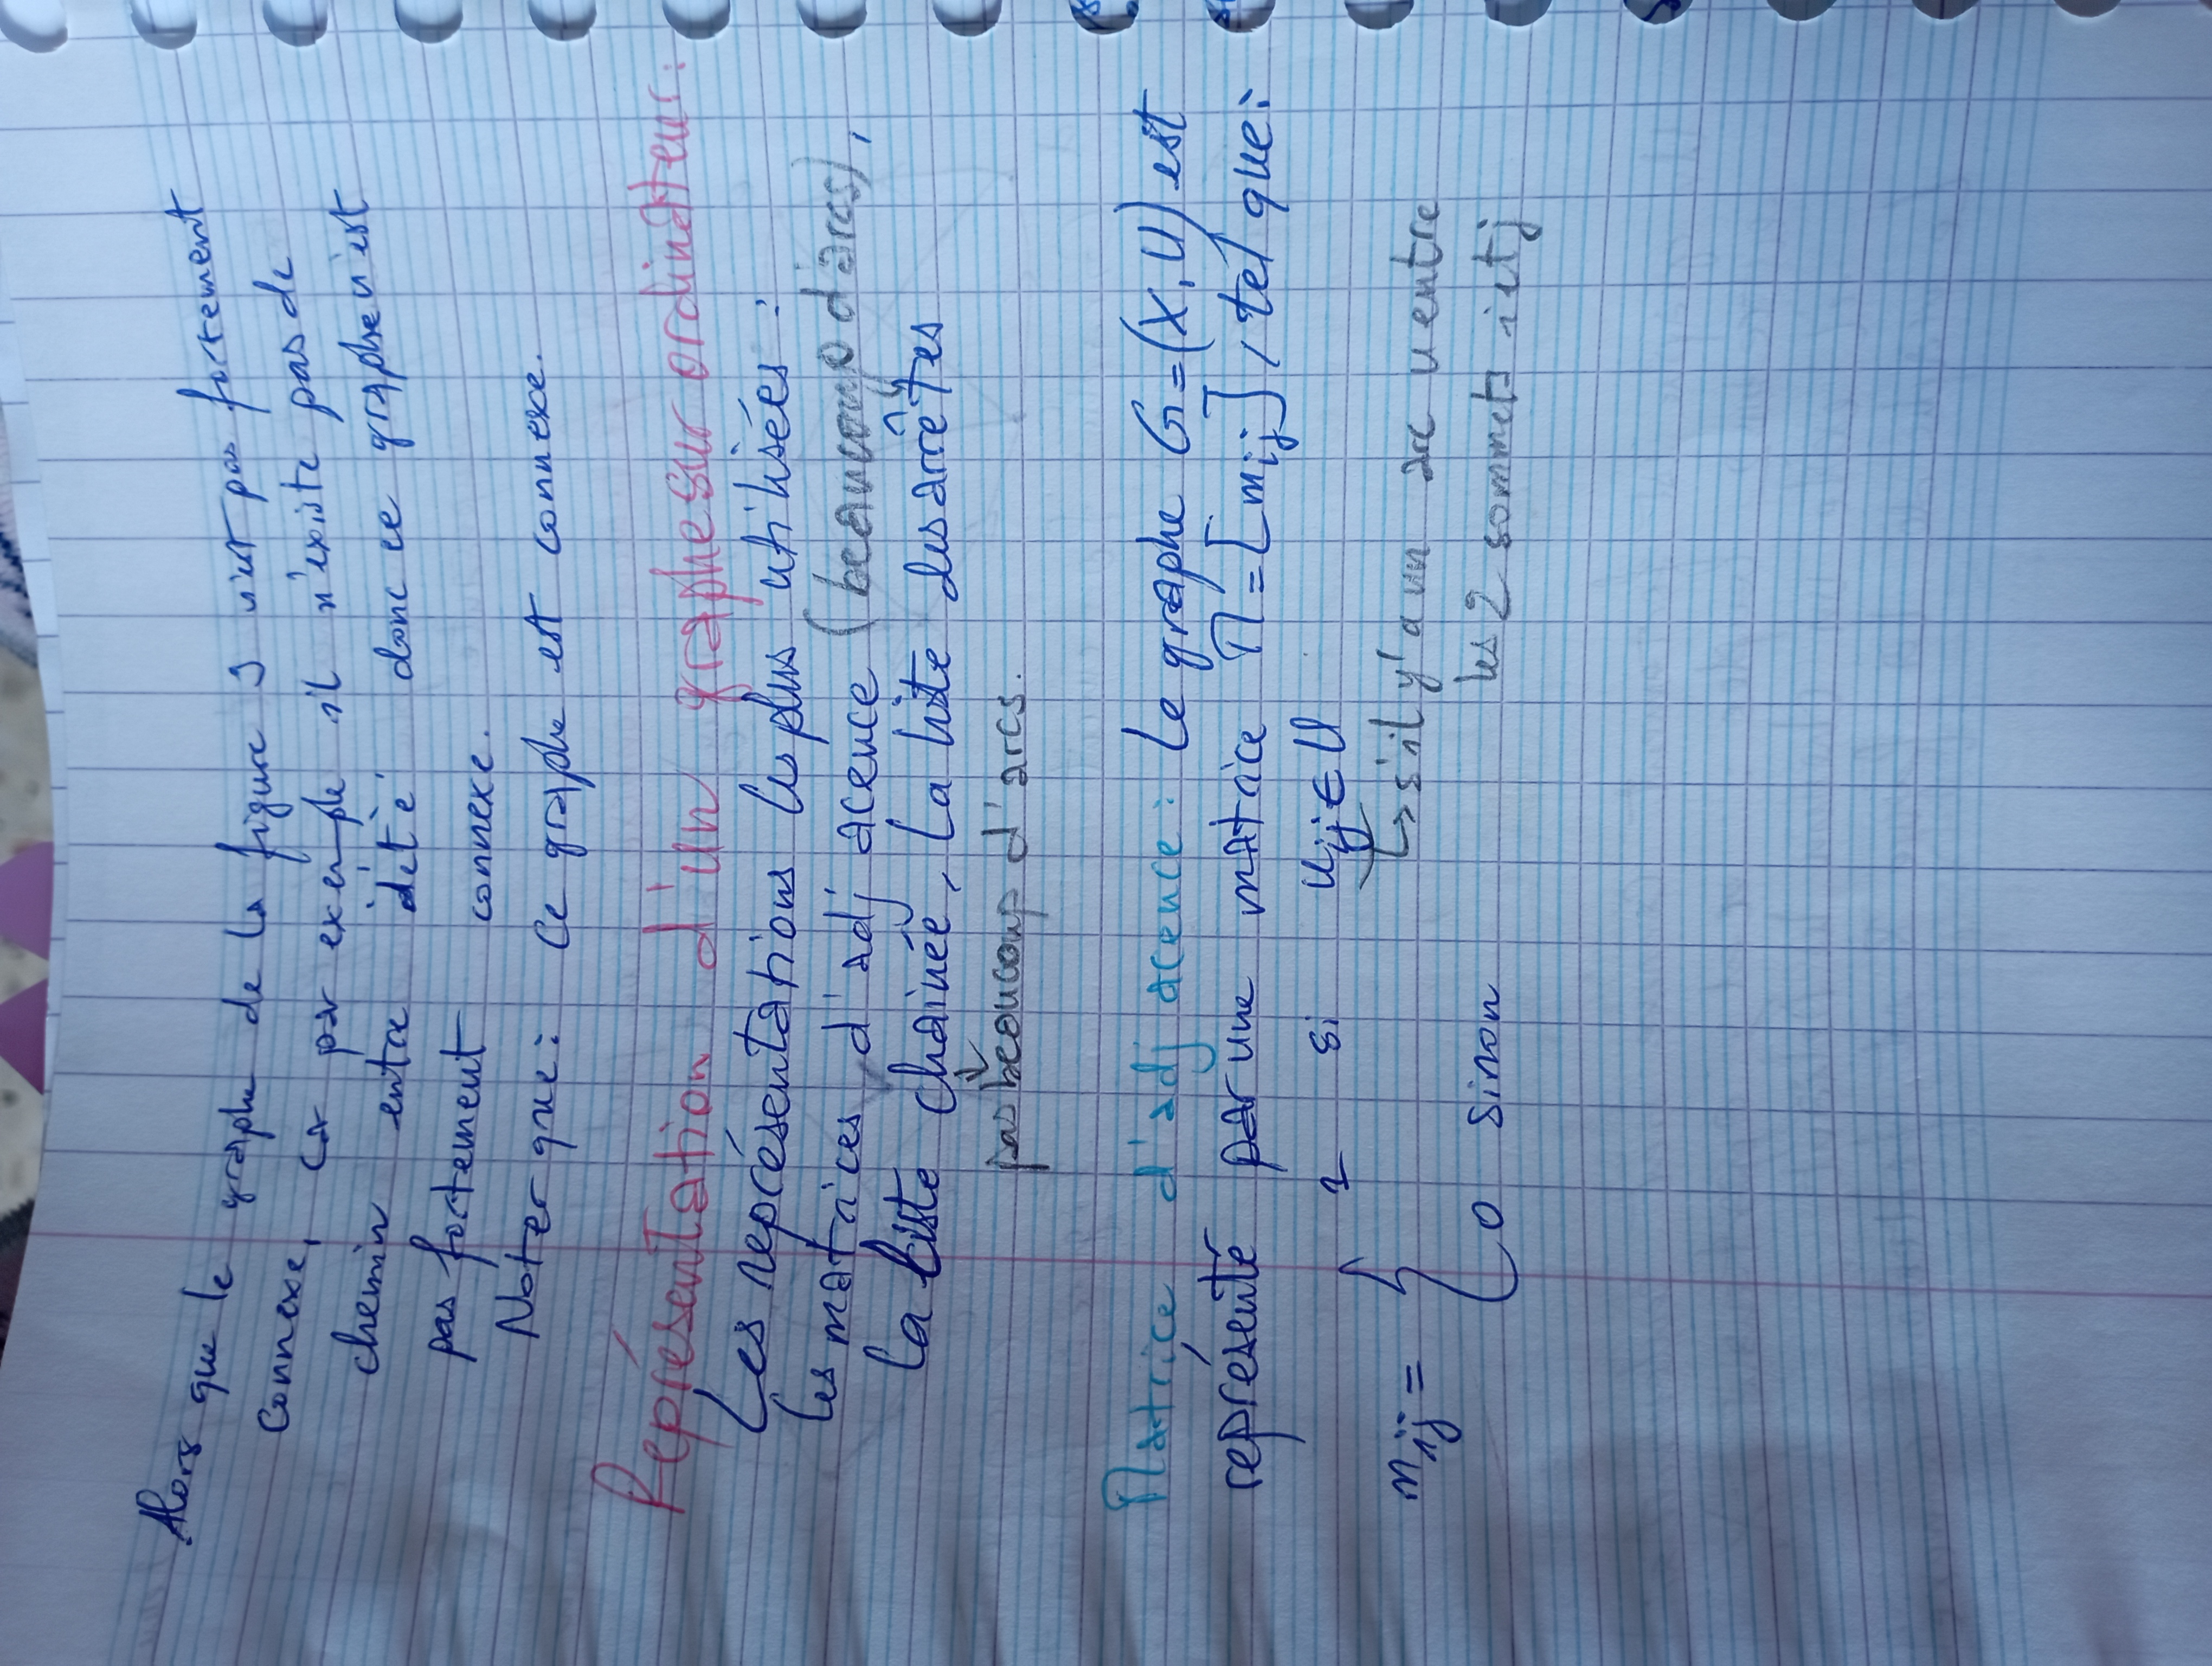 Alors que le graphe de la figure 3 n'est pas fortement
connexe, car par exemple il n'existe pas de
chemin entre d et e donc ce graphe n'est
pas fortement connexe.
Noter que : Ce graphe est connexe.
Représentation d'un graphe sur ordinateur :
Les représentations les plus utilisées :
les matrices d'adjacence (beaucoup d'arcs),
la liste chaînée, la liste des arêtes
pas beaucoup d'arcs.
Matrice d'adjacence : le graphe G=(X,U) est
représenté par une matrice M=[mij], tel que :
mij = { 1 si uij ∈ U
↳ s'il y'a un arc u entre
0 sinon les 2 sommets i et j